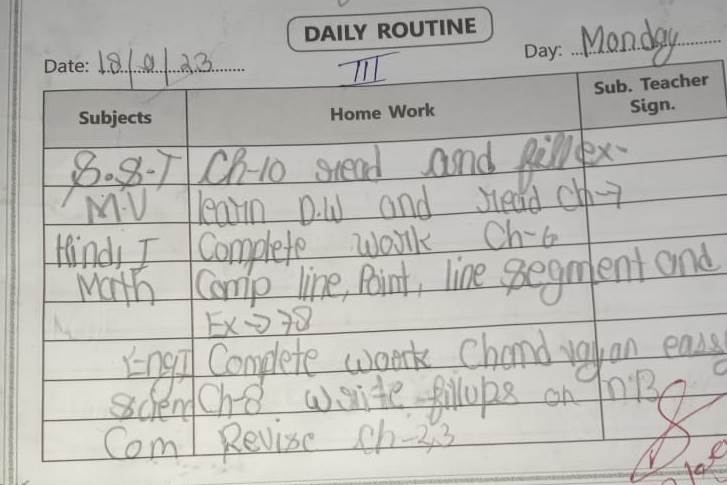 DAILY ROUTINE
Date: 18/9/23 Day: Monday
III
Subjects Home Work Sub. Teacher Sign.
S.S.T Ch-10 read and fill ex-
M.V learn D.W and read Ch-7
Hindi I Complete work Ch-6
Math Comp line, Point, line segment and
Ex → 78
Eng I Complete woork Chandrayan eassy
Scien Ch-8 write fillups on N.B
Com Revise Ch-2,3